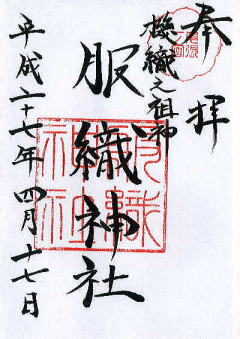 奉拝
機織之祖神
服織神社
平成二十七年四月十七日
服織神社